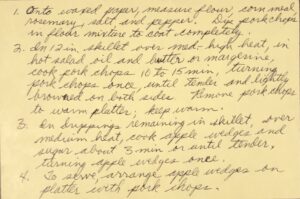 1. Onto waxed paper, measure flour, corn meal
rosemary, salt and pepper. Dip pork chops
in flour mixture to coat completely.
2. In 12 in. skillet over med-high heat, in
hot salad oil and butter or margerine,
cook pork chops 10 to 15 min, turning
pork chops once until tender and lightly
browned on both sides. Remove pork chops
to warm platter; keep warm.
3. In drippings remaining in skillet, over
medium heat, cook apple wedges and
sugar about 3 min or until tender,
turning apple wedges once.
4. To serve, arrange apple wedges on
platter with pork chops.